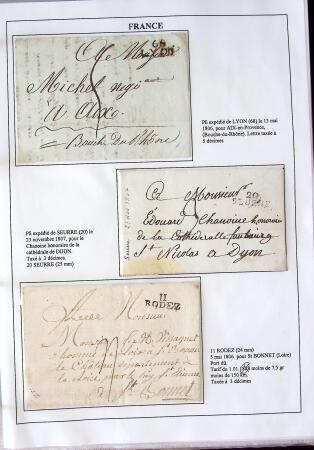 FRANCE
68
LYON
A Monsieur
Michel negt
A Aix
Bouche du Rhône
Pli expédié de LYON (68) le 13 mai
1806, pour AIX-en-Provence,
(Bouche-du-Rhône), Lettre taxée à
5 décimes.
Pli expédié de SEURRE (20) le
23 novembre 1807, pour le
Chanoine honoraire de la
cathédrale de DIJON.
Taxé à 3 décimes.
20 SEURRE (25 mm)
A Monsieur
20
SEURRE
Edouard Chanoine honoraire
de la Cathédralle faubourg
St Nicolas a Dyon
11
RODEZ
Monsieur
Monsieur
homme de loix à St Bonnet
le Château département de
la Loire, par St Etienne
St Bonnet
11 RODEZ (24 mm)
5 mai 1806 pour St BONNET (Loire)
Port dû.
Tarif du 1.01. moins de 7,5 gr
moins de 150 km.
Taxée à 3 décimes